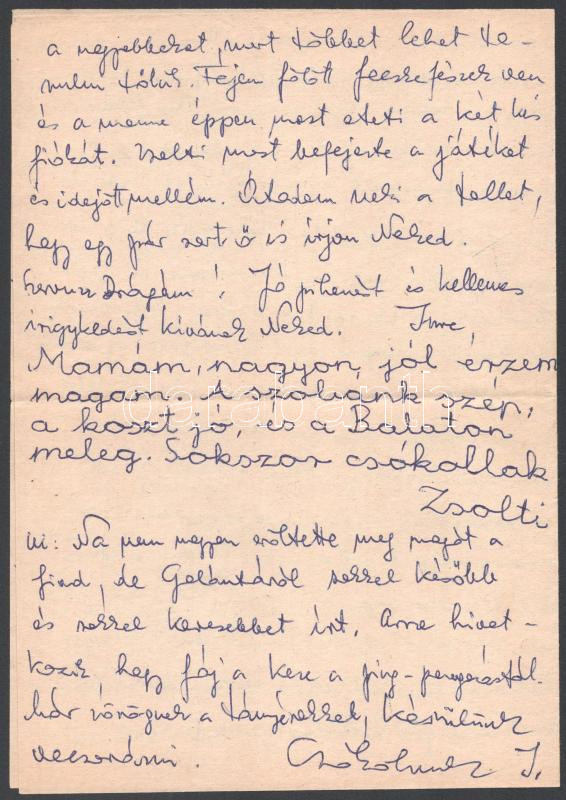 a nagyobbakat, mert többet lehet ta-
nulni tőlük. Fejem fölött fecskefészek van
és a mama éppen most eteti a két kis
fiókát. Zsolti most befejezte a játékot
és idejött mellém. Átadom neki a tollat,
hogy egy pár sort ő is írjon Neked.
Szervusz Drágám! Jó pihenést és kellemes
irigykedést kívánok Neked. Imre,
Mamám, nagyon, jól érzem
magam. A szobánk szép,
a koszt jó, és a Balaton
meleg. Sokszor csókollak
Zsolti
Ui: Na nem nagyon erőltette meg magát a
fiad, de Galántáról sokkal később
és sokkal kevesebbet írt. Arra hivat-
kozik, hogy fáj a keze a ping-pongozástól.
Már zörögnek a tányérokkal, készülünk
vacsorázni. Csókolunk I.
darabanth